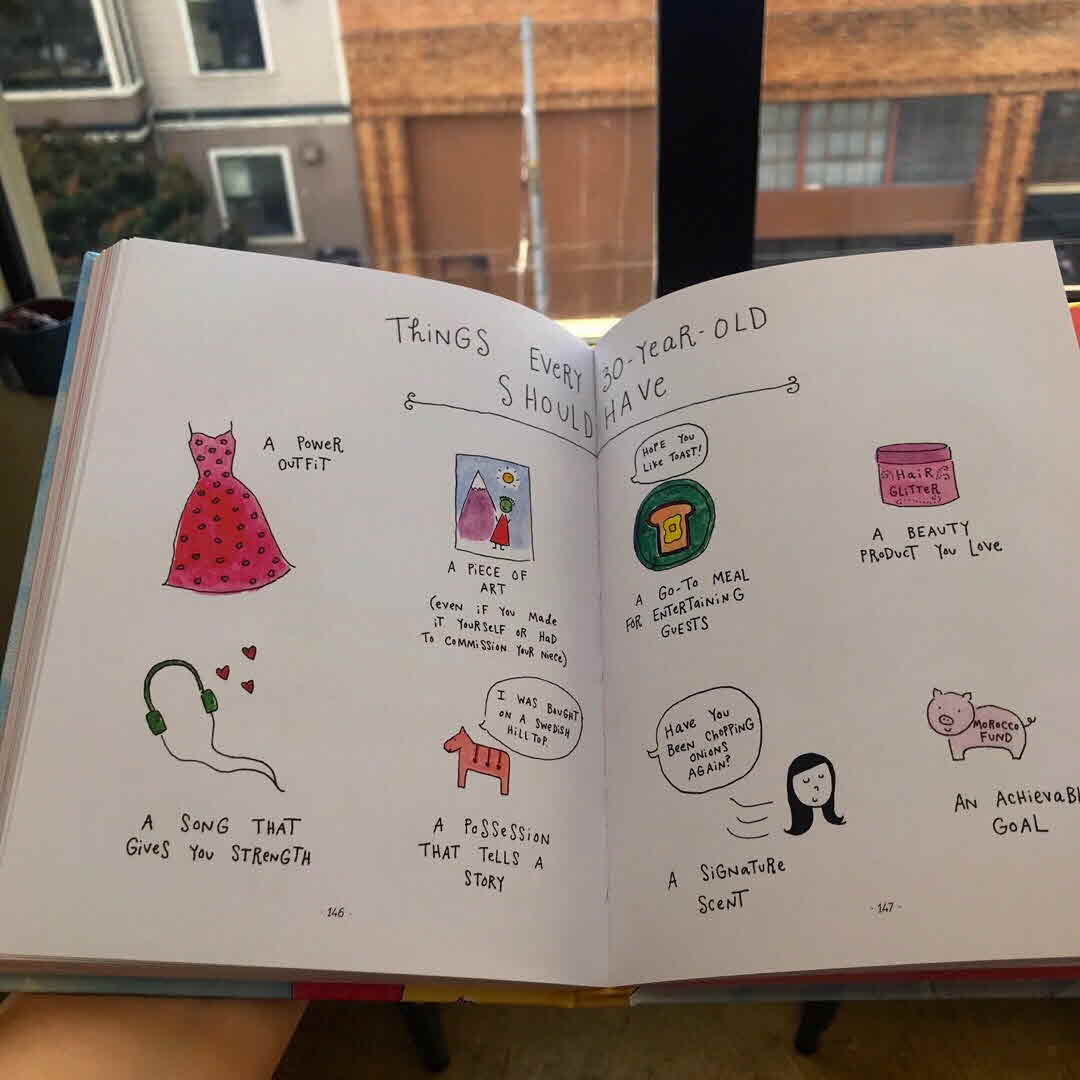 THINGS EVERY 30-YEAR-OLD
SHOULD HAVE
A POWER
OUTFIT
A PIECE OF
ART
(EVEN IF YOU MADE
IT YOURSELF OR HAD
TO COMMISSION YOUR NIECE)
A SONG THAT
GIVES YOU STRENGTH
I WAS BOUGHT
ON A SWEDISH
HILLTOP.
A POSSESSION
THAT TELLS A
STORY
- 146 -
HOPE YOU
LIKE TOAST!
A GO-TO MEAL
FOR ENTERTAINING
GUESTS
HAIR
GLITTER
A BEAUTY
PRODUCT YOU LOVE
HAVE YOU
BEEN CHOPPING
ONIONS
AGAIN?
A SIGNATURE
SCENT
MOROCCO
FUND
AN ACHIEVABL
GOAL
- 147 -